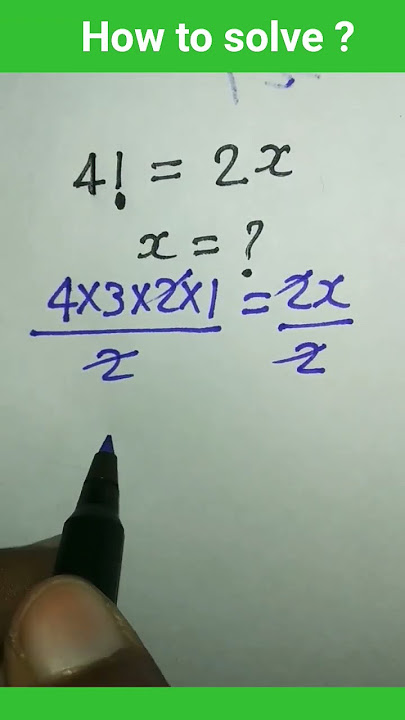 How to solve ?
4! = 2x
x = ?
4×3×2×1 = 2x
2 2